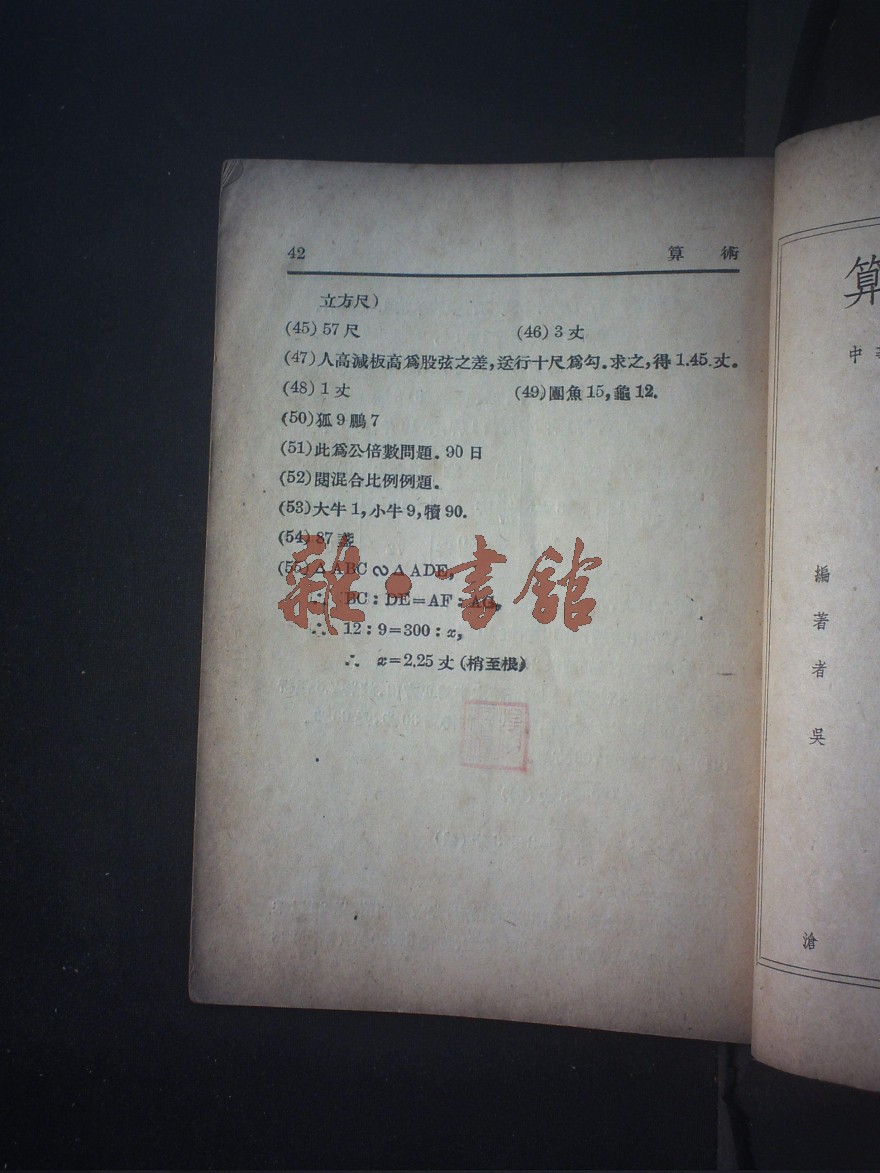 42 算 術
立方尺)
(45) 57 尺 (46) 3 丈
(47) 人高減板高爲股弦之差,送行十尺爲勾.求之,得 1.45 丈.
(48) 1 丈 (49) 團魚 15, 龜 12.
(50) 狐 9 鵬 7
(51) 此爲公倍數問題. 90 日
(52) 閱混合比例例題.
(53) 大牛 1, 小牛 9, 犢 90.
(54) 87 盞
(55) △ABC∽△ADE,
∴ BC : DE=AF : AG,
∴ 12 : 9=300 : x,
∴ x=2.25 丈 (梢至根)
雜·書館
算
中
編著者 吳
滄